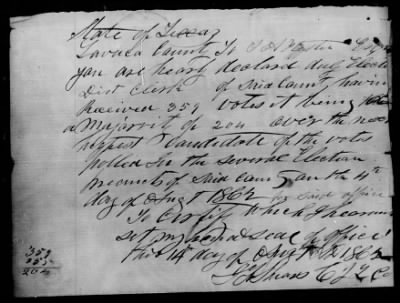 State of Texas
Lavaca County To
you are hearby declared duly Elected
Dist Clerk of Said County having
Received 359 votes it being
a Majorrit of 204 over the next
highest Candidate of the votes
polled in the several Election
precincts of Said County on the 4th
day of August 1862 for said office
To Certify Which I hereunto
set my hand & seal of office
this 14 day of August 1862
359
155
204